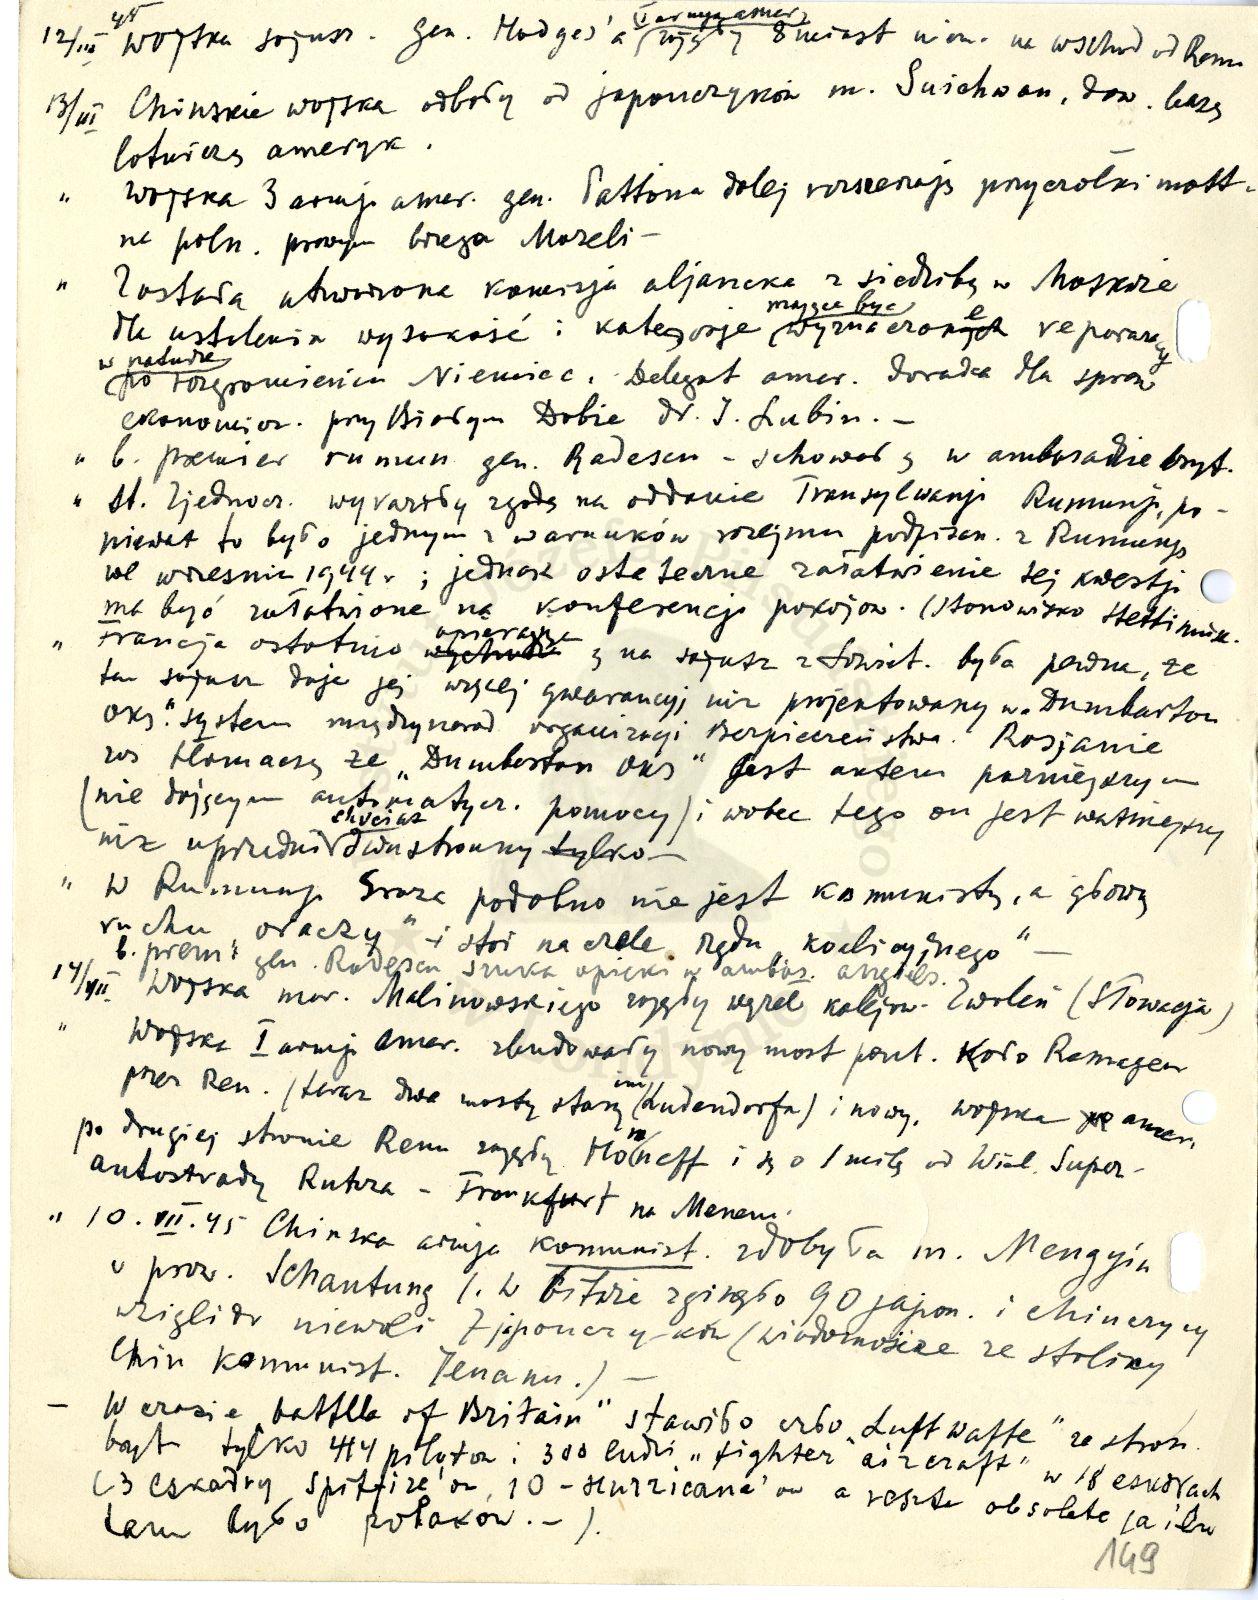 12/III 45 Wojska sojusz. gen. Hodges'a (I armja amer.) zajęły 8 miast niem. na wschód od Renu
13/III Chińskie wojska odbiły od japończyków m. Suichwan, daw. bazę
lotniczą ameryk.
" Wojska 3 armji amer. gen. Pattona dalej rozszerzają przyczółki most.
na półn. prawym brzegu Mozeli —
" Została utworzona komisja aljancka z siedzibą w Moskwie
dla ustalenia wysokość i kategorje mające być wyznaczone reparacyj
w naturze po rozgromieniu Niemiec. Delegat amer. doradca dla spraw
ekonomicz. przy Białym Domie dr. I. Lubin. —
" b. premier rumun. gen. Radescu - schował ę w ambasadzie bryt.
" St. Zjednocz. wyraziły zgodę na oddanie Transylwanji Rumunji, po-
nieważ to było jednym z warunków rozejmu podpisan. z Rumunją
we wrześniu 1944 r.; jednak ostateczne załatwienie tej kwestji
ma być załatwione na konferencji pokojow. (stanowisko Stettiniusa.
" Francja ostatnio opierając ę na sojusz z Sowiet. była pewna, że
ten sojusz daje jej więcej gwarancyj niż projektowany w "Dumbarton
Oks." system międzynarod. organizacji Bezpieczeństwa. Rosjanie
zaś tłomaczą że "Dumbarton Oks" jest aktem późniejszym
(nie dającym automatycz. pomocy) i wobec tego on jest ważniejszy
niż uprzedni chociaż dwustronny tylko —
" W Rumunji Groza podobno nie jest komunistą, a głową
ruchu "oraczy" - i stoi na czele rządu "koalicyjnego" —
b. premi gen. Radescu szuka opieki w ambas. angiels.
14/VII Wojska mar. Malinowskiego zajęły węzeł kolejow. Zwoleń (Słowacja)
" Wojska I armji amer. zbudowały nowy most pont. koło Remagen
przez Ren. (teraz dwa mosty stary im. Ludendorfa) i nowy, wojska amer.
po drugiej stronie Renu zajęły Honneff i są o 1 milę od Wiel. Super-
autostrady Ruhra - Frankfurt na Menem.
" 10.VII.45 Chińska armja komunist. zdobyła m. Mengyin
v prow. Schantung (. W bitwie zginęło 90 japon. i chińczycy
wzięli do niewoli 7 japończyków (wiadomości ze stolicy
Chin komunist. Jenanu.) —
— W czasie "battle of Britain" stawiło czoło "Luftwaffe" ze stron.
bryt tylko 414 pilotów i 300 ludzi "fighter aircraft" w 18 eskdrach
(3 eskadry spitfire'ów, 10 - Hurricane'ów a reszta obsolete ja ilu
tam było polaków. — ).
149